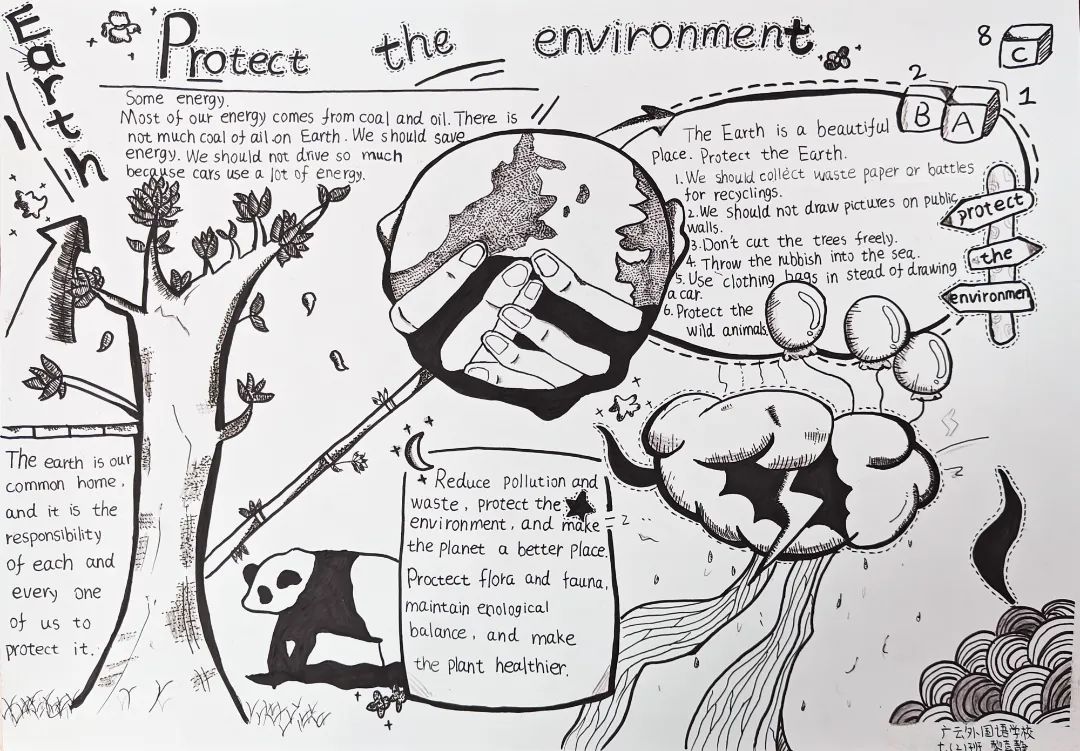 Earth
Protect the environment
8
C
Some energy.
Most of our energy comes from coal and oil. There is
not much coal of ail on Earth. We should save
energy. We should not drive so much
because cars use a lot of energy.
2
B A
1
The Earth is a beautiful
place. Protect the Earth.
1. We should collect waste paper or battles
for recyclings.
2. We should not draw pictures on public
walls.
3. Don't cut the trees freely.
4. Throw the rubbish into the sea.
5. Use clothing bags in stead of drawing
a car.
6. Protect the
wild animals.
protect
the
environmen
The earth is our
common home,
and it is the
responsibility
of each and
every one
of us to
protect it.
Reduce pollution and
waste, protect the
environment, and make
the planet a better place.
Proctect flora and fauna,
maintain enological
balance, and make
the plant healthier.
2
广云外国语学校